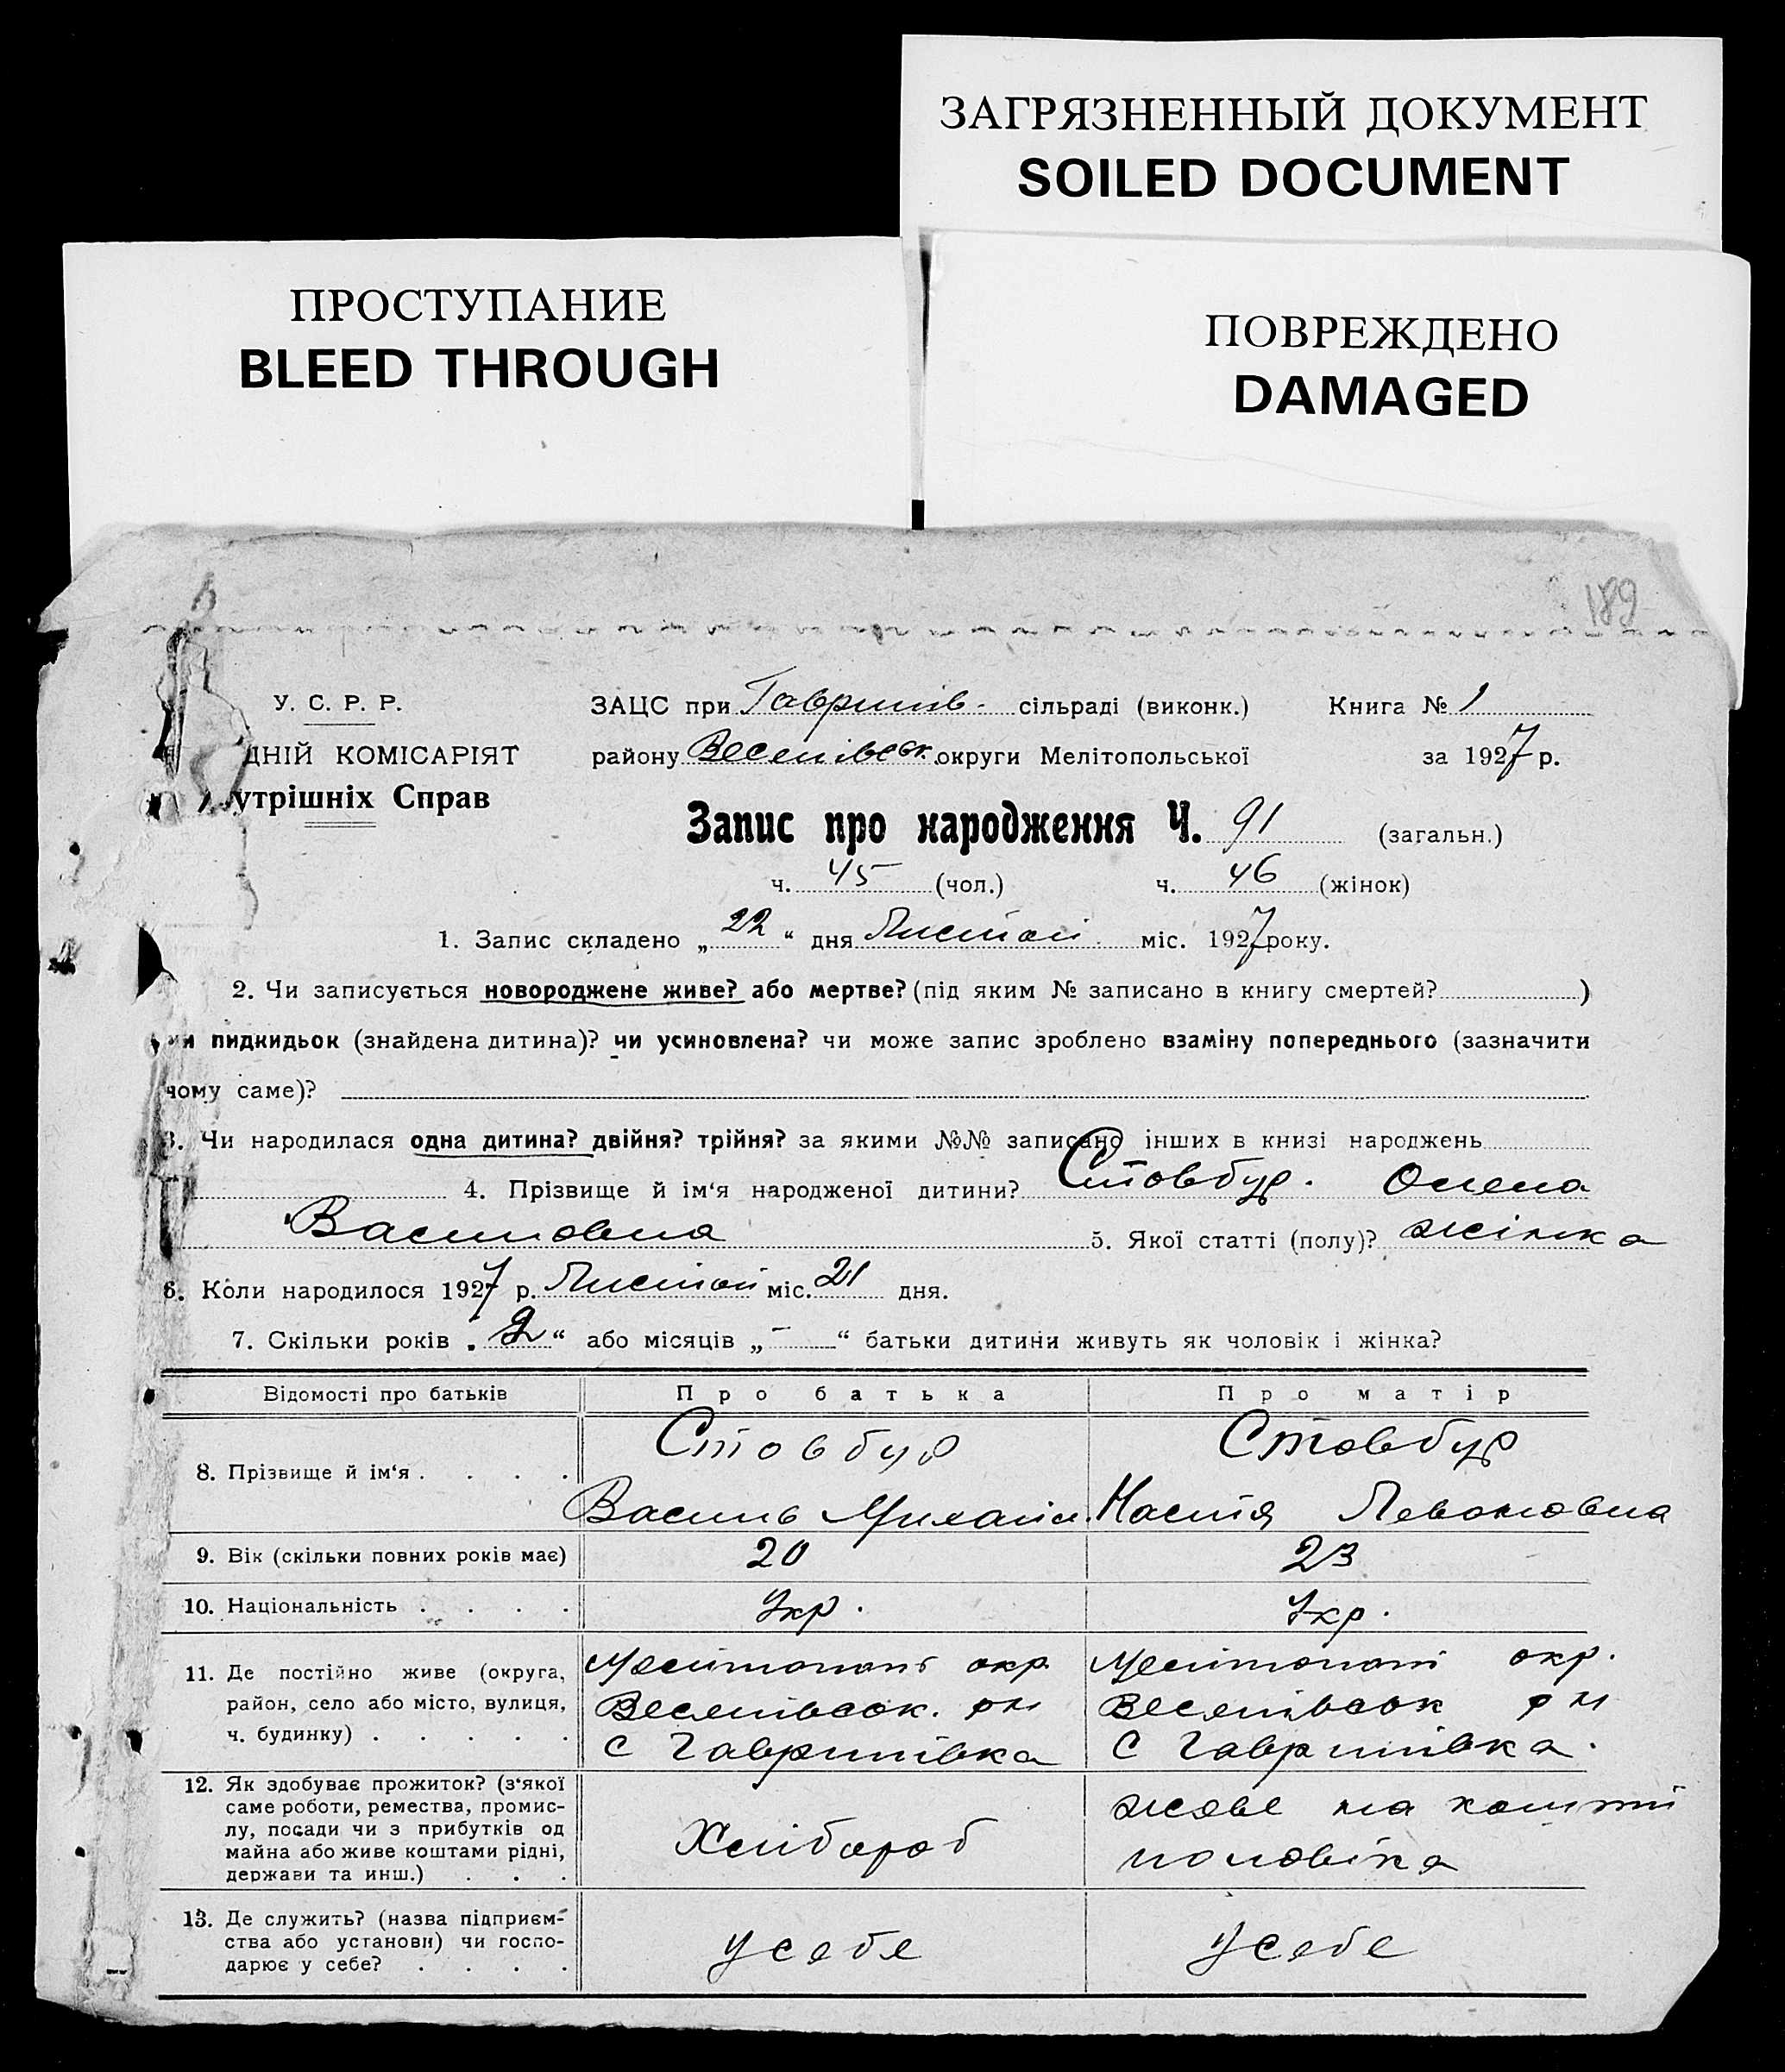 ЗАГРЯЗНЕННЫЙ ДОКУМЕНТ
SOILED DOCUMENT
ПРОСТУПАНИЕ
BLEED THROUGH
ПОВРЕЖДЕНО
DAMAGED
189
У. С. Р. Р.
ДНІЙ КОМІСАРІЯТ
утрішніх Справ
ЗАЦС при Гаврилів. сільраді (виконк.) Книга № 1
району Веселівськ. округи Мелітопольської за 1927 р.
Запис про народження Ч. 91 (загальн.)
ч. 45 (чол.) ч. 46 (жінок)
1. Запис складено „ 22 “ дня Листоп. міс. 1927 року.
2. Чи записується новороджене живе? або мертве? (під яким № записано в книгу смертей? )
чи пидкидьок (знайдена дитина)? чи усиновлена? чи може запис зроблено взаміну попереднього (зазначити
чому саме)?
3. Чи народилася одна дитина? двійня? трійня? за якими №№ записано інших в книзі народжень
4. Прізвище й ім‘я народженої дитини? Стовбур. Олена
Василовна 5. Якої статті (полу)? жінка
6. Коли народилося 1927 р. Листоп міс. 21 дня.
7. Скільки років „ 2 “ або місяців „ – “ батьки дитини живуть як чоловік і жінка?
Відомості про батьків Про батька Про матір
8. Прізвище й ім‘я . . . . Стовбур Стовбур
Василь Михайл. Настя Левоновна
9. Вік (скільки повних років має) 20 23
10. Національність . . . . Укр. Укр.
11. Де постійно живе (округа, Мелітополь окр. Мелітополь окр.
район, село або місто, вулиця, Веселівськ. рн Веселівськ рн
ч. будинку) . . . . . С Гаврилівка С Гаврилівка.
12. Як здобуває прожиток? (з‘якої
саме роботи, ремества, промис-
лу, посади чи з прибутків од
майна або живе коштами рідні,
держави та инш.) . . .
Хлібороб
живе на кошти
чоловіка
13. Де служить? (назва підприєм-
ства або установи) чи госпо-
дарює у себе? . . . .
у себе у себе